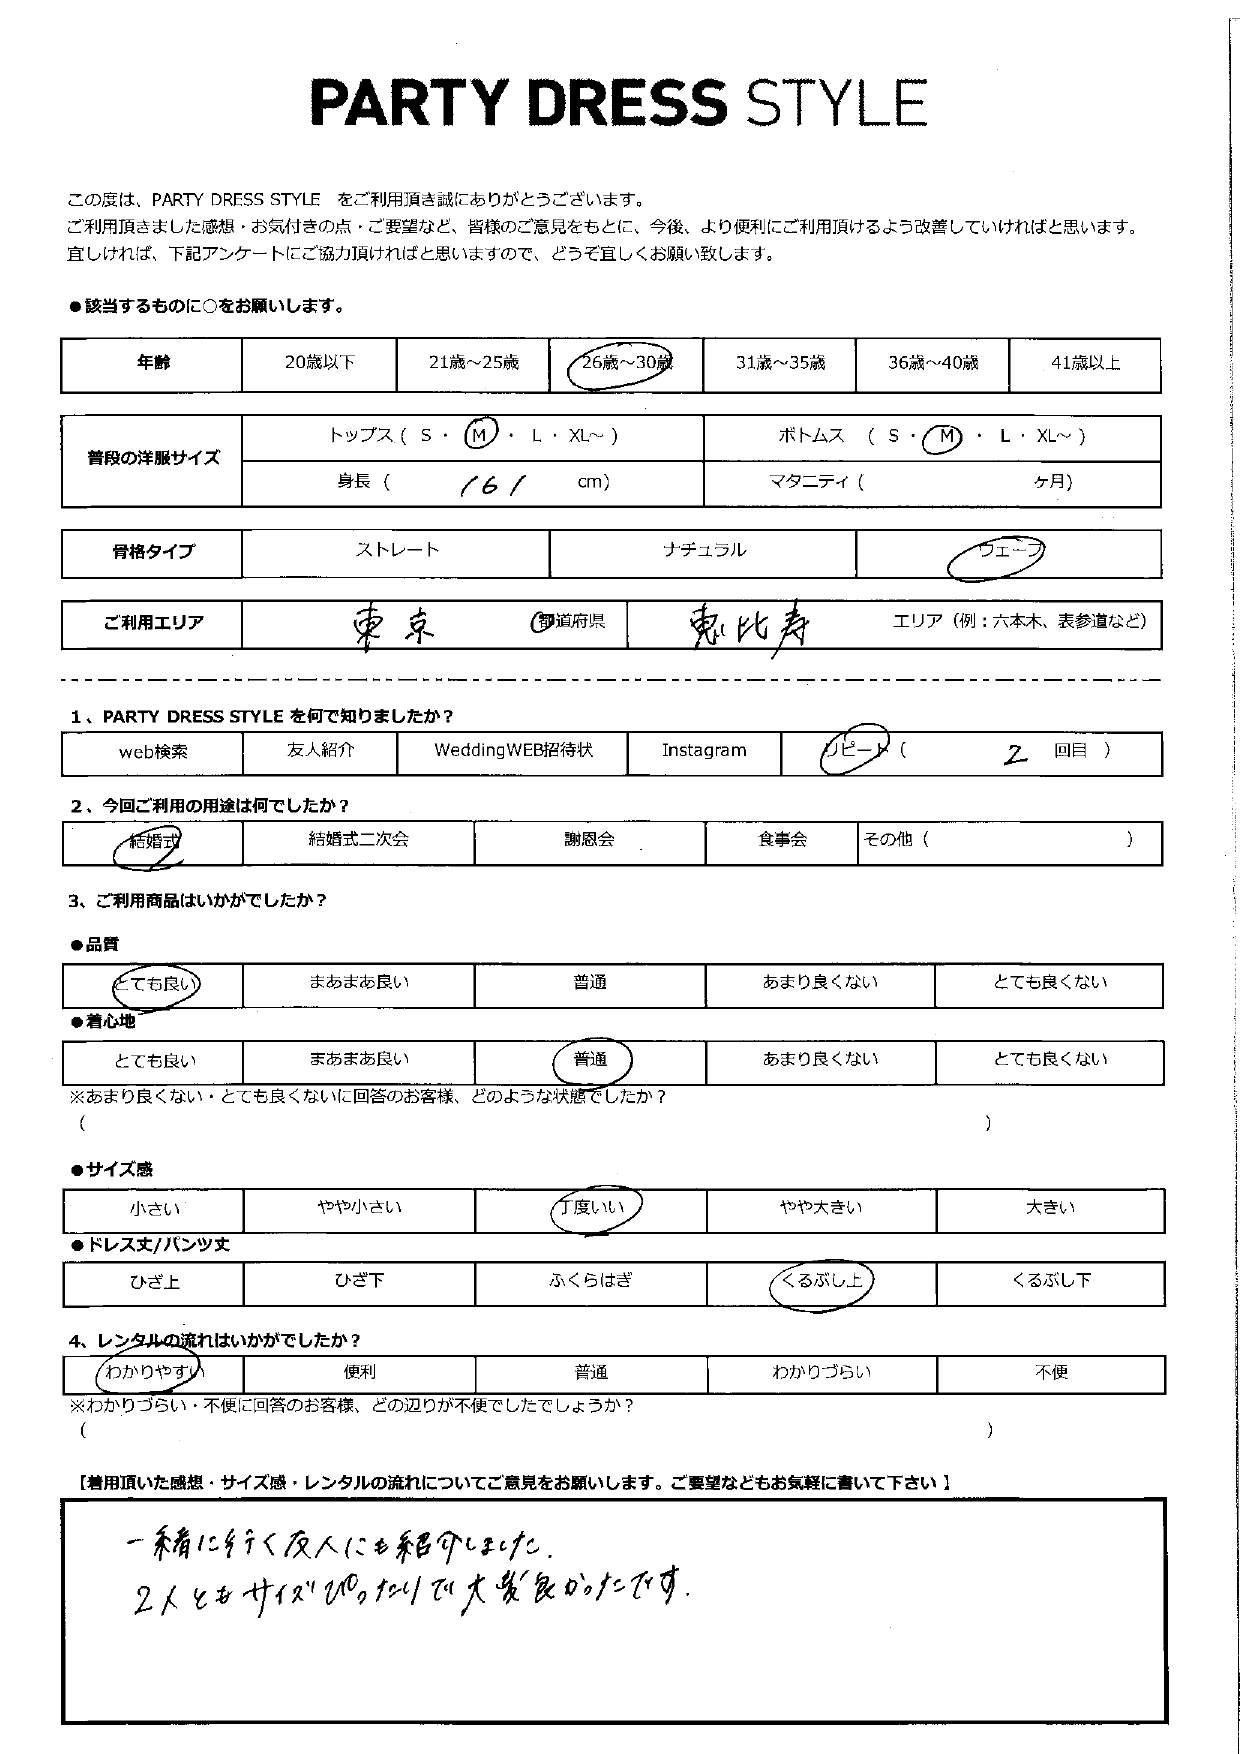 PARTY DRESS STYLE
この度は、PARTY DRESS STYLE をご利用頂き誠にありがとうございます。
ご利用頂きました感想・お気付きの点・ご要望など、皆様のご意見をもとに、今後、より便利にご利用頂けるよう改善していければと思います。
宜しければ、下記アンケートにご協力頂ければと思いますので、どうぞ宜しくお願い致します。
●該当するものに○をお願いします。
年齢 20歳以下 21歳～25歳 26歳～30歳 31歳～35歳 36歳～40歳 41歳以上
普段の洋服サイズ
トップス ( S ・ M ・ L ・ XL～ ) ボトムス ( S ・ M ・ L ・ XL～ )
身長 ( 161 cm) マタニティ ( ヶ月)
骨格タイプ ストレート ナチュラル ウェーブ
ご利用エリア 東京 都道府県 恵比寿 エリア (例：六本木、表参道など)
1、PARTY DRESS STYLE を何で知りましたか？
web検索 友人紹介 WeddingWEB招待状 Instagram リピート ( 2 回目 )
2、今回ご利用の用途は何でしたか？
結婚式 結婚式二次会 謝恩会 食事会 その他 ( )
3、ご利用商品はいかがでしたか？
●品質
とても良い まあまあ良い 普通 あまり良くない とても良くない
●着心地
とても良い まあまあ良い 普通 あまり良くない とても良くない
※あまり良くない・とても良くないに回答のお客様、どのような状態でしたか？
( )
●サイズ感
小さい やや小さい 丁度いい やや大きい 大きい
●ドレス丈/パンツ丈
ひざ上 ひざ下 ふくらはぎ くるぶし上 くるぶし下
4、レンタルの流れはいかがでしたか？
わかりやすい 便利 普通 わかりづらい 不便
※わかりづらい・不便に回答のお客様、どの辺りが不便でしたでしょうか？
( )
【着用頂いた感想・サイズ感・レンタルの流れについてご意見をお願いします。ご要望などもお気軽に書いて下さい】
一緒に行く友人にも紹介しました.
2人ともサイズぴったりで大変良かったです.